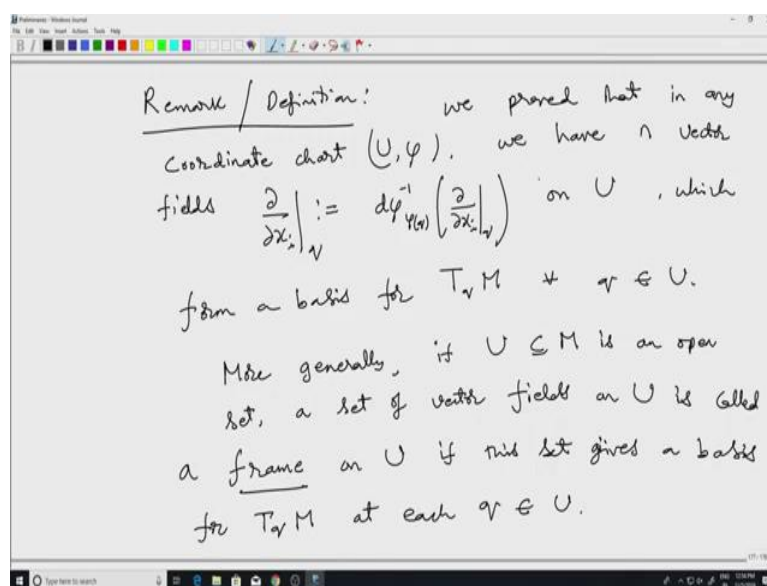 Preliminaries - Windows Journal
File Edit View Insert Actions Tools Help
Remark / Definition: we proved that in any
coordinate chart (U, φ). we have n vector
fields ∂/∂xᵢ|_q := dφ⁻¹_φ(q) (∂/∂xᵢ|_q) on U , which
form a basis for T_q M ∀ q ∈ U.
More generally, if U ⊆ M is an open
set, a set of vector fields on U is called
a frame on U if this set gives a basis
for T_q M at each q ∈ U.
Type here to search